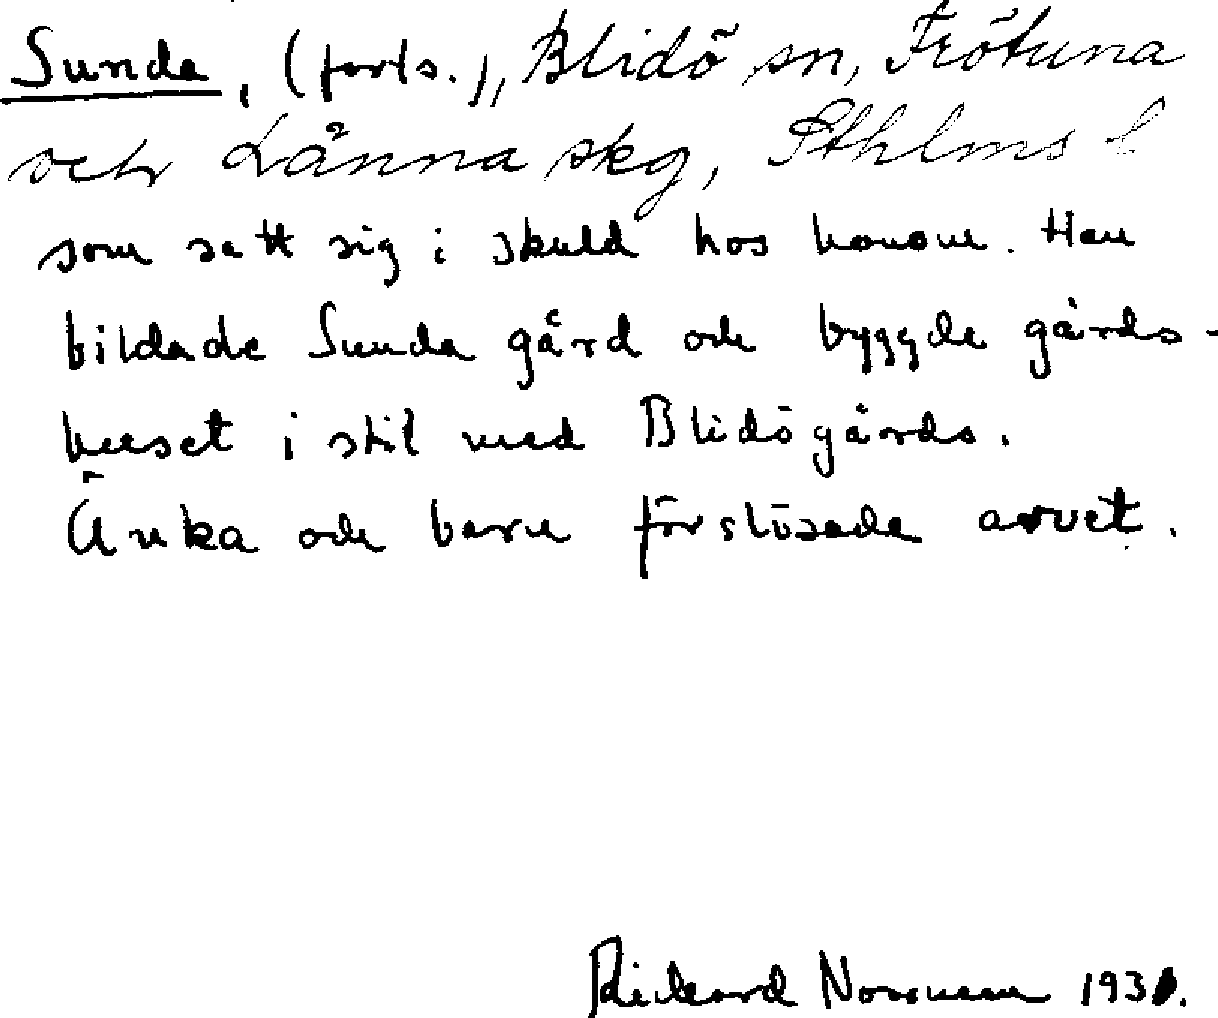 Sunda, (forts.), Blidö sn, Frötuna
och Länna skg, Sthlms l
som satt sig i skuld hos honom. Han
bildade Sunda gård och byggde gårds-
huset i stil med Blidö gårds.
Änka och barn förslösade arvet.
Rickard Norrman